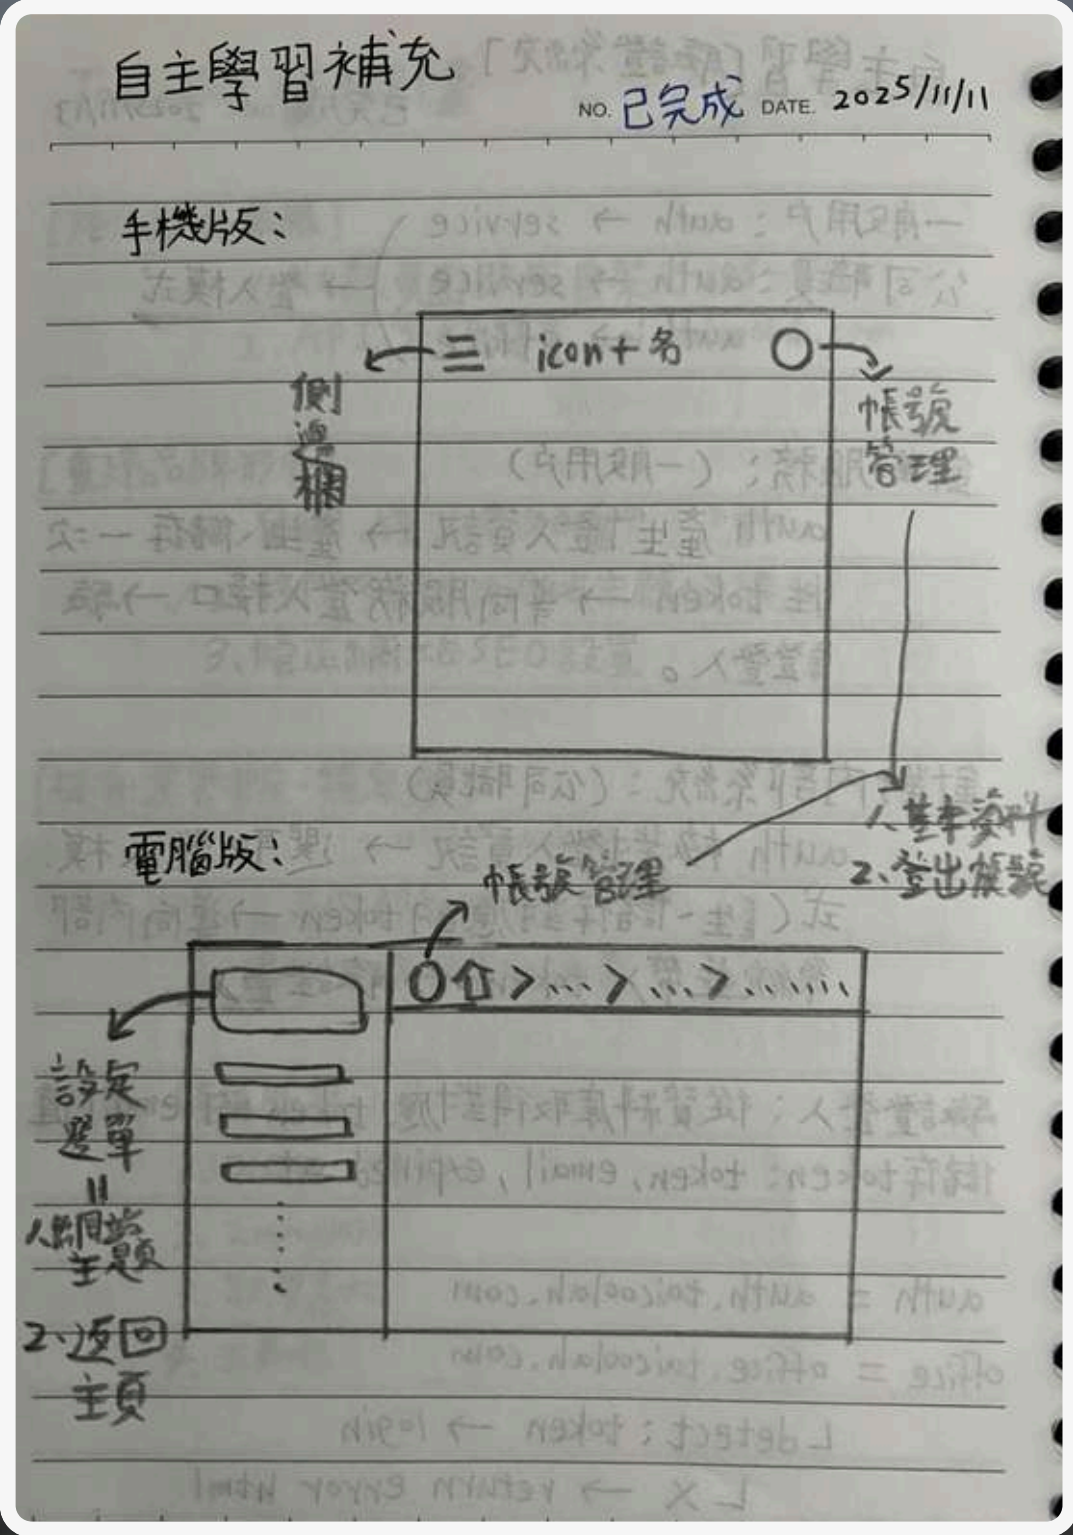 自主學習補充
NO. 已完成 DATE. 2025/11/11
手機版：
三 icon+名
側邊欄
帳號管理
1、基本資料
2、登出帳號
電腦版：
帳號管理
>...>...>......
設定選單
=
1、網站主題
2、返回主頁